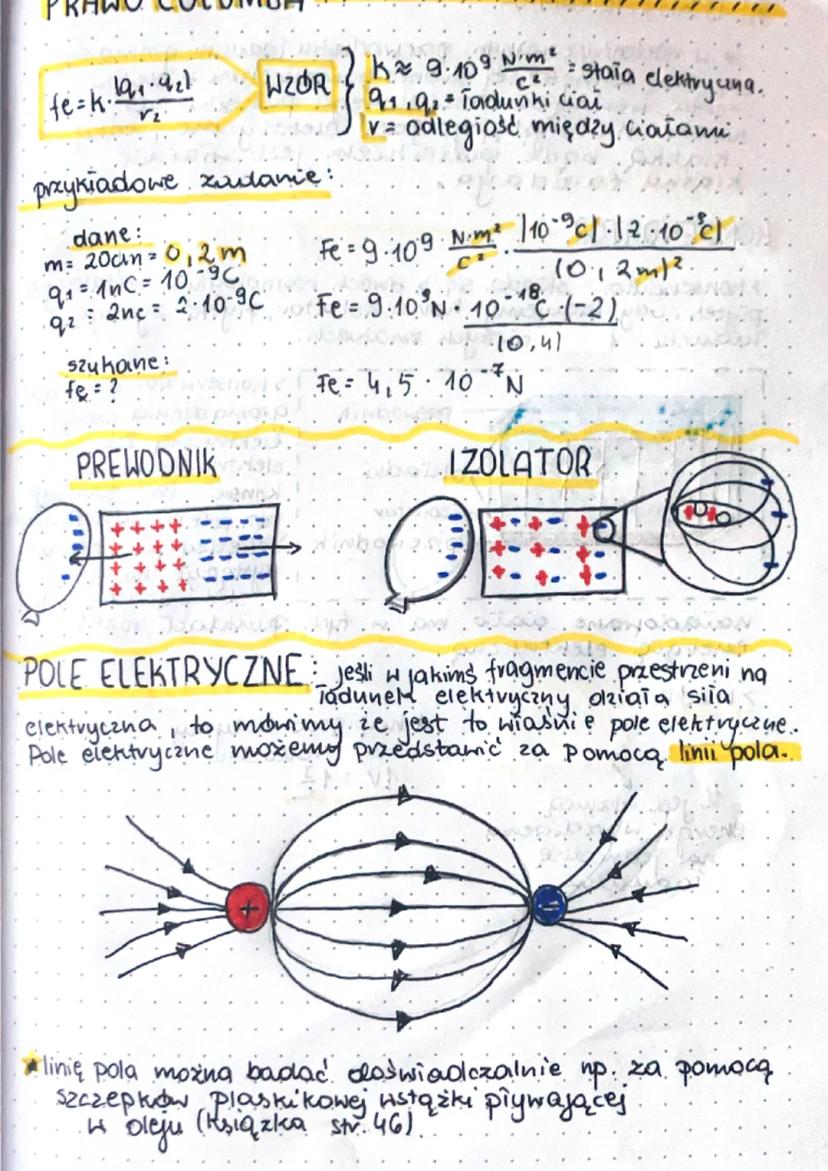 PRAWO COLUMBA
fe = k · |q₁ · q₂| / r₂
WZÓR
k ≈ 9·10⁹ N·m² / c² = stała elektryczna.
q₁, q₂ = ładunki ciał
r = odległość między ciałami
przykładowe zadanie:
dane:
m = 20cm = 0,2m
q₁ = 1nC = 10⁻⁹C
q₂ = 2nc = 2·10⁻⁹C
szukane:
fe = ?
Fe = 9·10⁹ N·m² / c² · |10⁻⁹c| · |2·10⁻⁹c| / (0,2m)²
Fe = 9·10⁹N · 10⁻¹⁸C (-2) / (0,4)
Fe = 4,5 · 10⁻⁷N
PREWODNIK
IZOLATOR
POLE ELEKTRYCZNE: jeśli w jakimś fragmencie przestrzeni na
ładunek elektryczny działa siła
elektryczna, to mówimy że jest to właśnie pole elektryczne.
Pole elektryczne możemy przedstawić za pomocą linii pola.
linię pola można badać doświadczalnie np. za pomocą
szczepków plaskikowej wstążki pływającej
w oleju (książka str. 46)